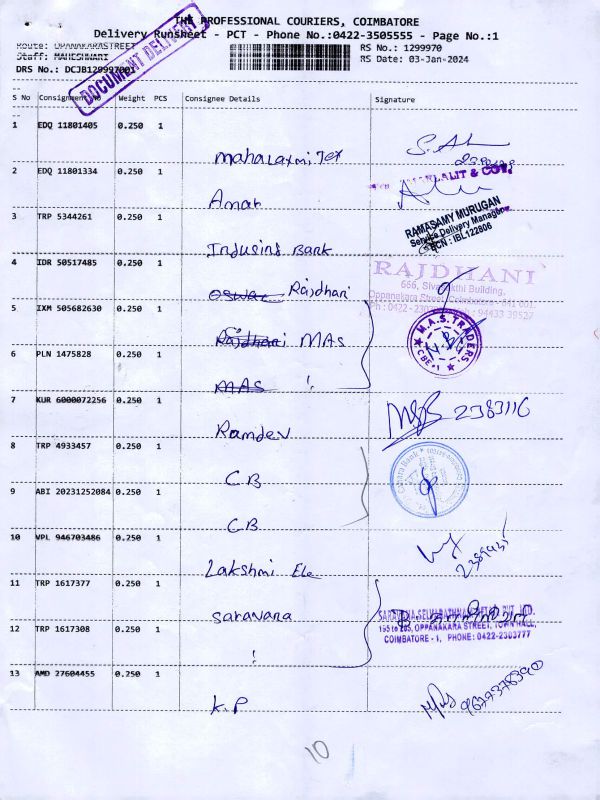 THE PROFESSIONAL COURIERS, COIMBATORE
Delivery Runsheet - PCT - Phone No.:0422-3505555 - Page No.:1
Route: OPANAKARASTREET
RS No.: 1299970
Staff: MAHESHWARI
RS Date: 03-Jan-2024
DRS No.: DCJB129997001
DOCUMENT DELIVERY
S No Consignment No Weight PCS Consignee Details Signature
1 EDQ 11801405 0.250 1
Mahalaxmi Tex
2 EDQ 11801334 0.250 1
Amar
3 TRP 5344261 0.250 1
RAMASAMY MURUGAN
Service Delivery Manager
ECN : IBL122806
Indusind Bank
4 IDR 50517485 0.250 1
RAJDHANI
666, Sivasakthi Building,
Oppanakara Street, Coimbatore - 641 001.
Rajdhani
5 IXM 505682630 0.250 1
M.A.S. TRADERS
CBE-1
Rajdhani MAS
6 PLN 1475828 0.250 1
MAS !
7 KUR 6000072256 0.250 1
2383116
Ramdev
8 TRP 4933457 0.250 1
Canara Bank
CB
9 ABI 20231252084 0.250 1
CB
10 VPL 946703486 0.250 1
Lakshmi Ele
11 TRP 1617377 0.250 1
Saravana
195 to 205, OPPANAKARA STREET, TOWN HALL,
COIMBATORE - 1, PHONE: 0422-2303777
12 TRP 1617308 0.250 1
!
13 AMD 27604455 0.250 1
K.P
10